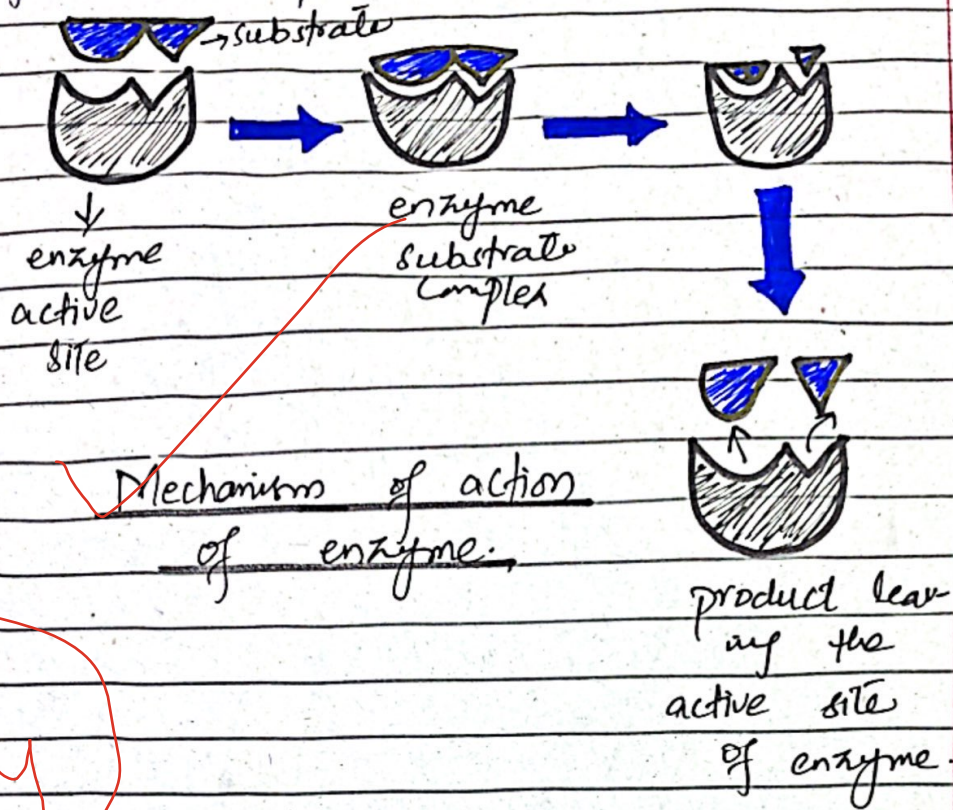 substrate
enzyme
active
site
enzyme
substrate
complex
Mechanism of action
of enzyme.
product leav-
ing the
active site
of enzyme.